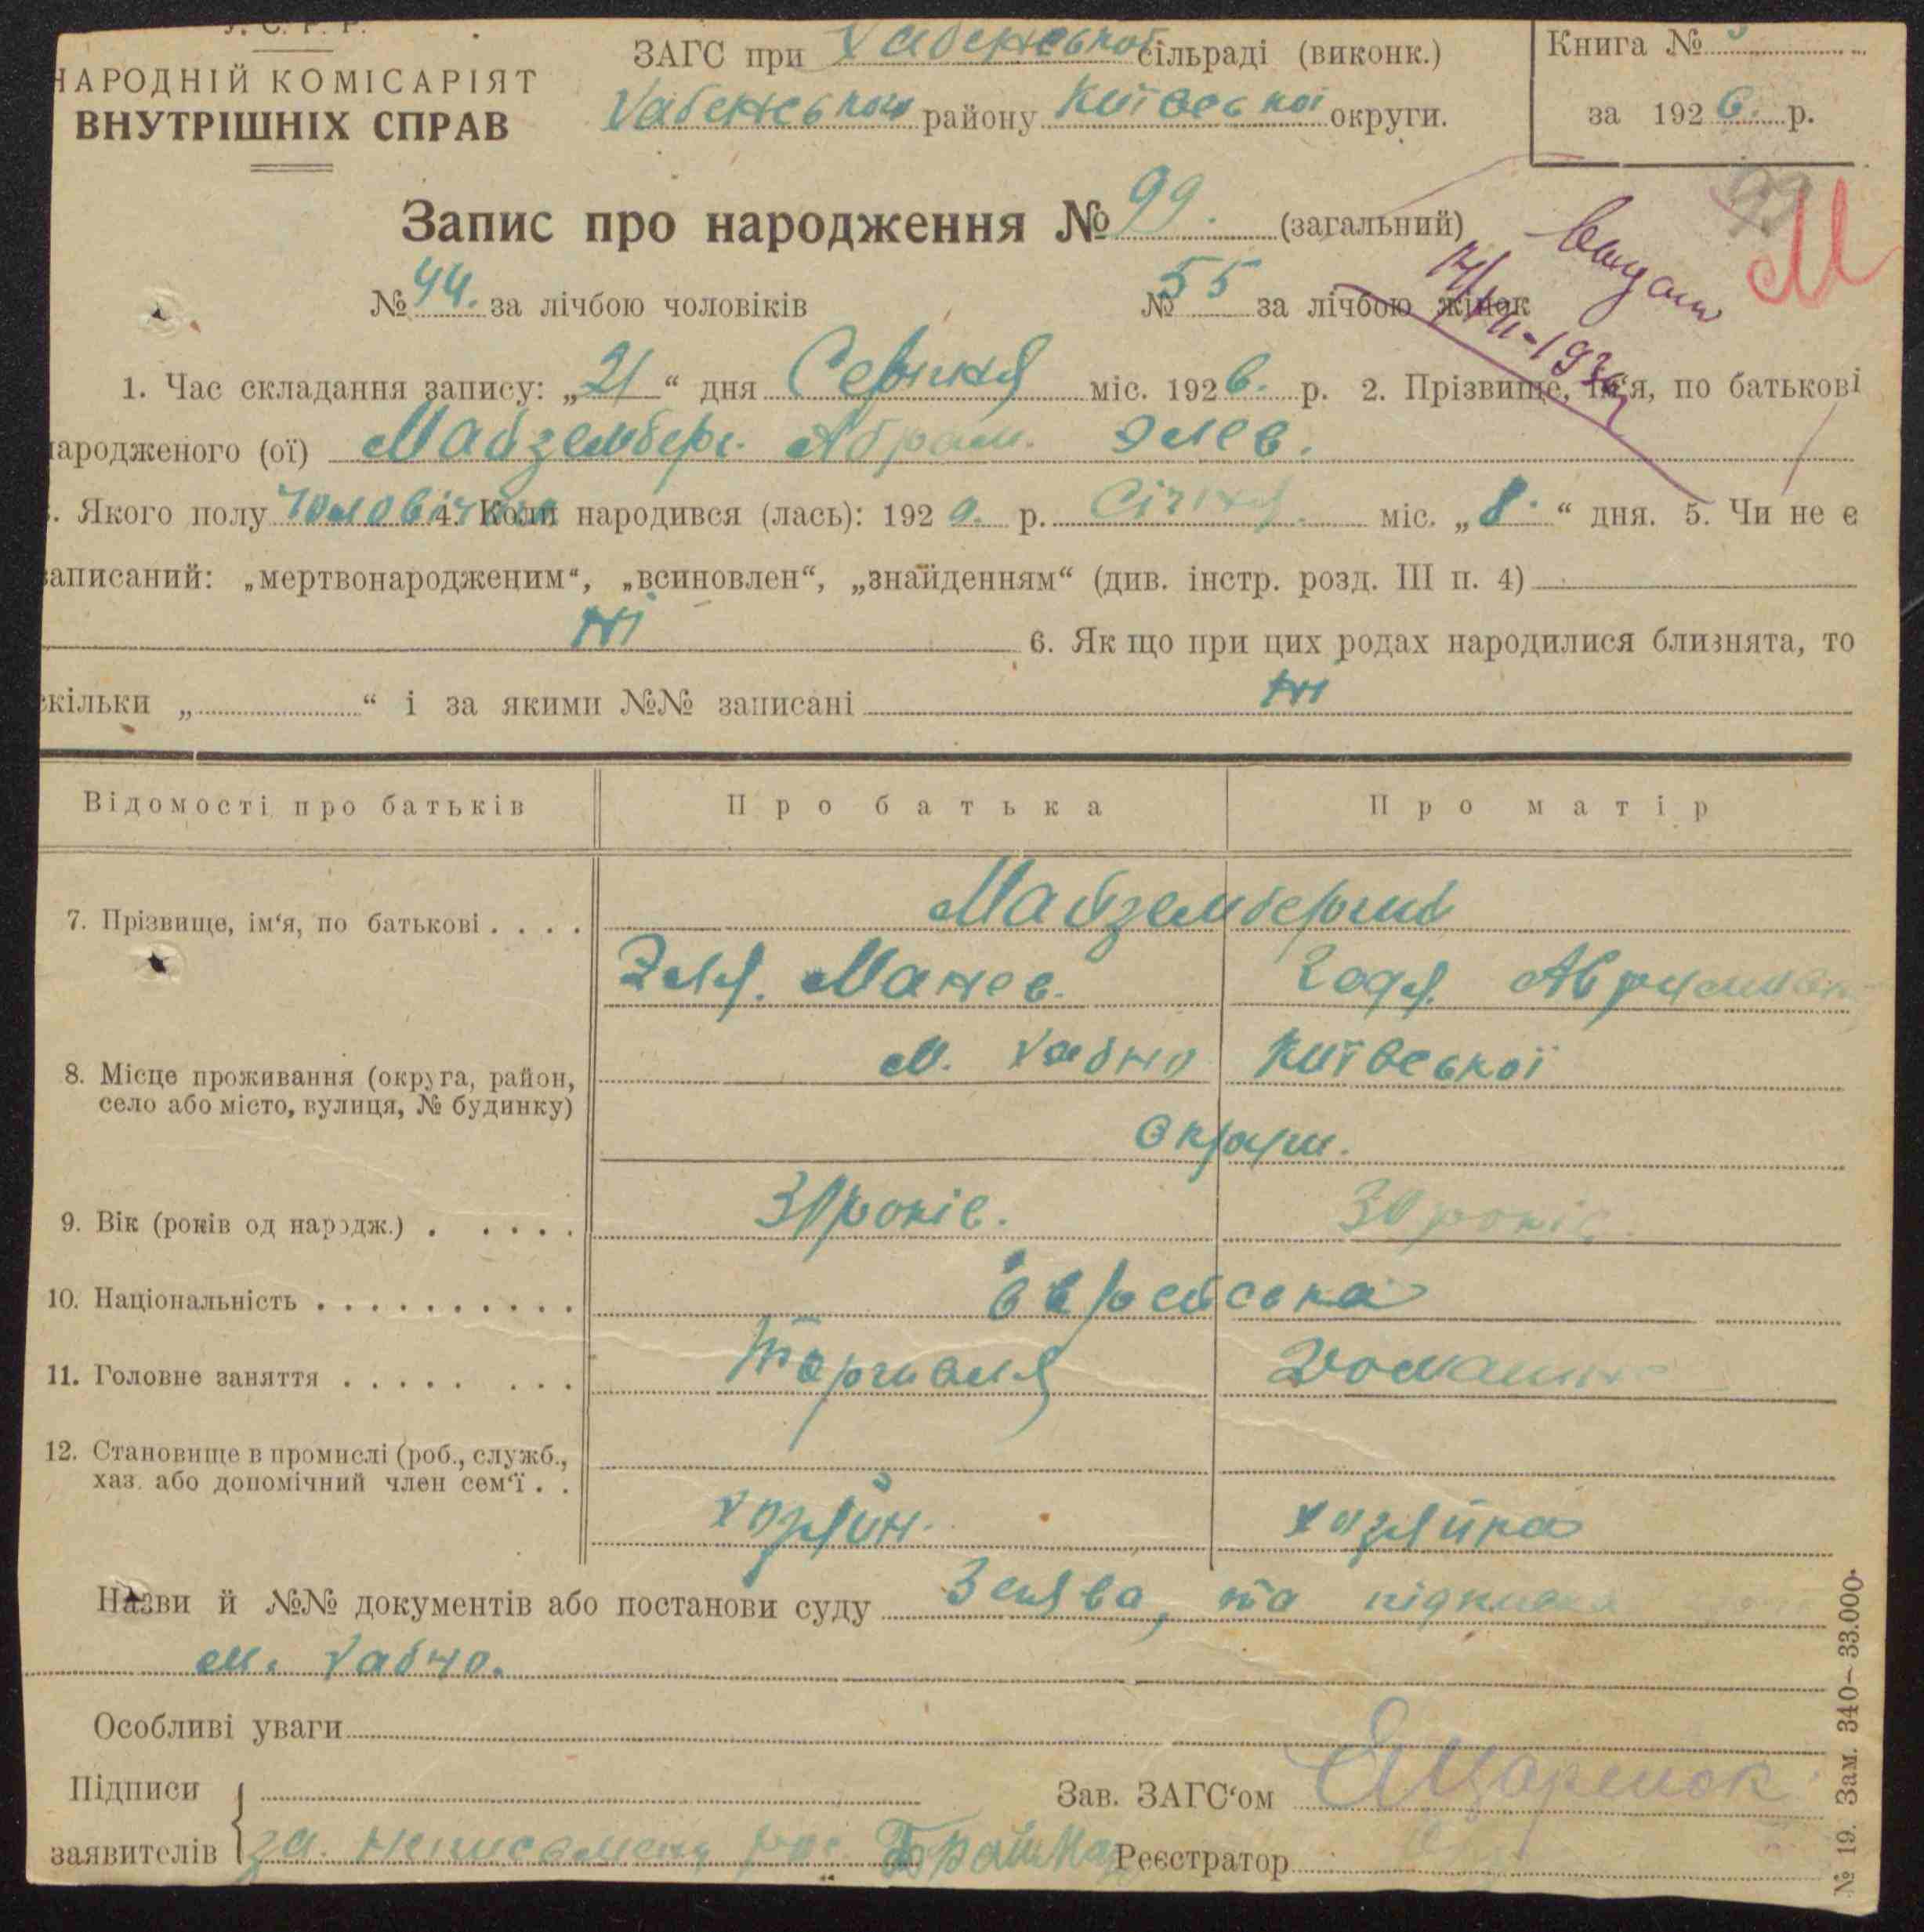 У. С. Р. Р.
НАРОДНІЙ КОМІСАРІЯТ
ВНУТРІШНІХ СПРАВ
ЗАГС при Хабенській сільраді (виконк.)
Хабенського району Київської округи.
Книга №
за 1926. р.
Запис про народження № 99. (загальний)
99
М
№ 44. за лічбою чоловіків № 55 за лічбою жінок
1. Час складання запису: „21“ дня Січня міс. 1926. р. 2. Прізвище, ім‘я, по батькові
народженого (ої) Майземберг. Абрам. Элев.
. Якого полу чоловічого 4. Коли народився (лась): 192 р. Січня. міс. „8.“ дня. 5. Чи не є
записаний: „мертвонародженим“, „всиновлен“, „знайденням“ (див. інстр. розд. III п. 4)
Ні
6. Як що при цих родах народилися близнята, то
скільки „ “ і за якими №№ записані Ні
Відомості про батьків Про батька Про матір
7. Прізвище, ім‘я, по батькові . . . . Майземберги
Эля. Манев. Годя.
8. Місце проживання (округа, район, село або місто, вулиця, № будинку) м. Хабно Київської
округи.
9. Вік (років од народж.) . . . . . років. 30 років.
10. Національність . . . . . . . . . . Єврейська
11. Головне заняття . . . . . . . . Торгівля Домашнє
12. Становище в промислі (роб., служб., хаз. або допомічний член сем‘ї . .
хозяїн. хозяйка
Назви й №№ документів або постанови суду Заява, та підписка
м. Хабно.
Особливі уваги
Підписи
заявителів за неписьмену рос.
Зав. ЗАГС‘ом
Реєстратор
№ 19. Зам. 340—33.000.